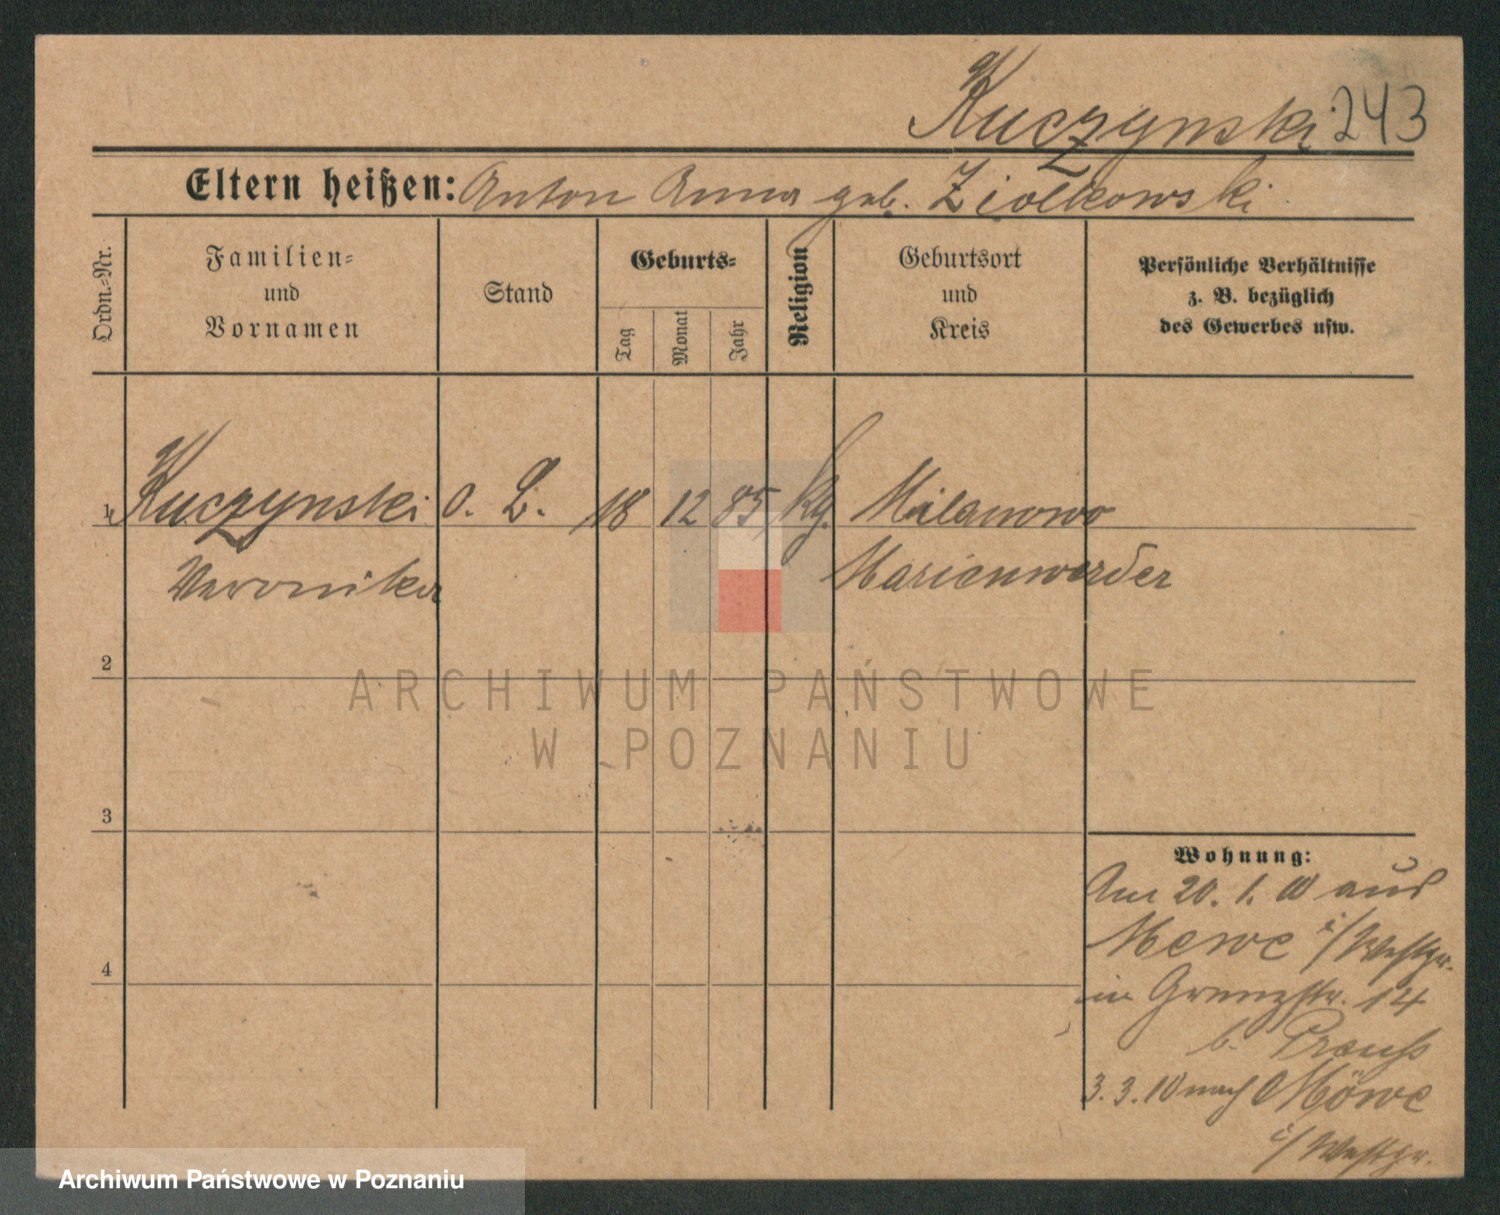 Kuczynski 243
Eltern heißen: Anton Anna geb. Ziolkowski
Ordn.-Nr.
Familien-
und
Vornamen
Stand
Geburts-
Tag
Monat
Jahr
Religion
Geburtsort
und
Kreis
Persönliche Verhältnisse
z. B. bezüglich
des Gewerbes usw.
1 Kuczynski o. B. 18 12 85 kg. Milanowo
Veronika Marienwerder
2
ARCHIWUM PAŃSTWOWE
W POZNANIU
3
Wohnung:
Am 20. 1. 10 aus
Mewe i/Westpr.
4
in Grenzstr. 14
b. Preuß
3. 3. 10 nach Möwe
i/Westpr.
Archiwum Państwowe w Poznaniu